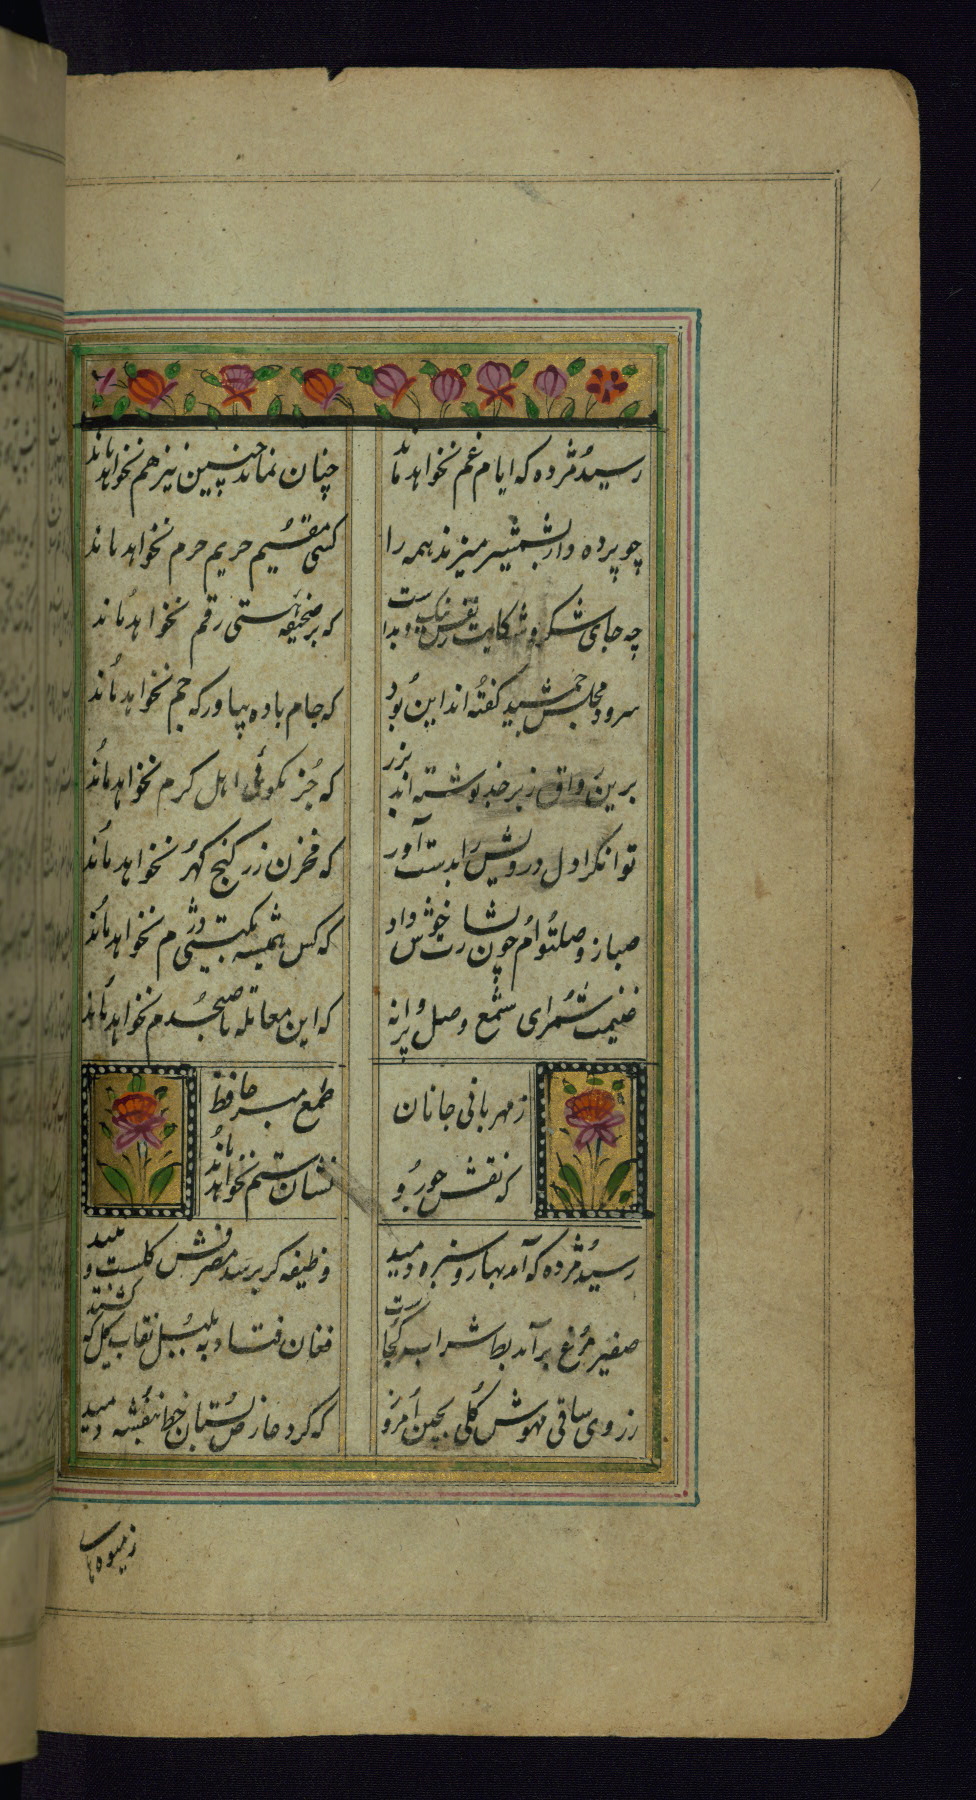 رسید مژده که ایام غم نخواهد ماند چنان نماند چنین نیز هم نخواهد ماند
چو پرده دار بشمشیر میزند همه را کسی مقیم حریم حرم نخواهد ماند
چه جای شکر و شکایت ز نقش نیک و بدست که بر صحیفه هستی رقم نخواهد ماند
سرود مجلس جمشید گفته اند این بود که جام باده بیاور که جم نخواهد ماند
برین رواق زبرجد نوشته اند بزر که جز نکوئی اهل کرم نخواهد ماند
توانگرا دل درویش را بدست آور که مخزن زر گنج گهر نخواهد ماند
صبا ز وصل تو ام چون خوش داد که کس همیشه دژم نخواهد ماند
غنیمت شمر ای شمع وصل پروانه که این معامله تا صبحدم نخواهد ماند
ز مهربانی جانان طمع مبر حافظ
که نقش جور و نشان ستم نخواهد ماند
رسید مژده که آمد بهار و سبزه دمید وظیفه گر برسد مصرفش گلست و نبید
صفیر مرغ برآمد بط شراب کجاست فغان فتاد به بلبل نقاب گل که کشید
ز روی ساقی مهوش گلی بچین امروز که گرد عارض بستان خط بنفشه دمید
ز میوه های